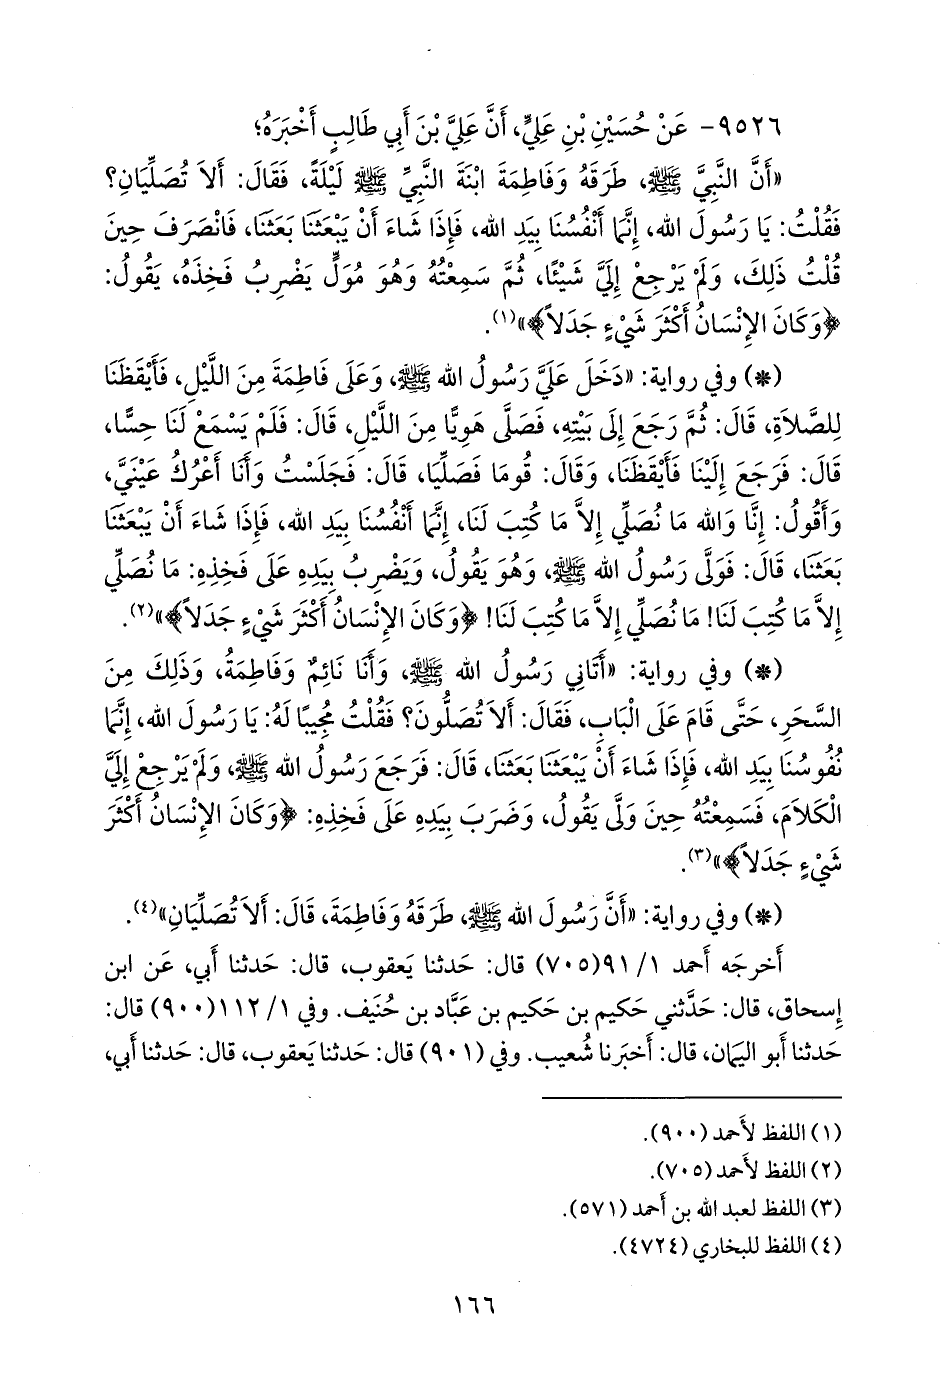 ٩٥٢٦- عَنْ حُسَيْنِ بْنِ عَلِيٍّ، أَنَّ عَلِيَّ بْنَ أَبِي طَالِبٍ أَخْبَرَهُ؛
«أَنَّ النَّبِيَّ ﷺ، طَرَقَهُ وَفَاطِمَةَ ابْنَةَ النَّبِيِّ ﷺ لَيْلَةً، فَقَالَ: أَلاَ تُصَلِّيَانِ؟
فَقُلْتُ: يَا رَسُولَ الله، إِنَّمَا أَنْفُسُنَا بِيَدِ الله، فَإِذَا شَاءَ أَنْ يَبْعَثَنَا بَعَثَنَا، فَانْصَرَفَ حِينَ
قُلْتُ ذَلِكَ، وَلَمْ يَرْجِعْ إِلَيَّ شَيْئًا، ثُمَّ سَمِعْتُهُ وَهُوَ مُوَلٍّ يَضْرِبُ فَخِذَهُ، يَقُولُ:
﴿وَكَانَ الإِنْسَانُ أَكْثَرَ شَيْءٍ جَدَلاً﴾»(١).
(*) وفي رواية: «دَخَلَ عَلَيَّ رَسُولُ الله ﷺ، وَعَلَى فَاطِمَةَ مِنَ اللَّيْلِ، فَأَيْقَظَنَا
لِلصَّلاَةِ، قَالَ: ثُمَّ رَجَعَ إِلَى بَيْتِهِ، فَصَلَّى هَوِيًّا مِنَ اللَّيْلِ، قَالَ: فَلَمْ يَسْمَعْ لَنَا حِسًّا،
قَالَ: فَرَجَعَ إِلَيْنَا فَأَيْقَظَنَا، وَقَالَ: قُومَا فَصَلِّيَا، قَالَ: فَجَلَسْتُ وَأَنَا أَعْرُكُ عَيْنَيَّ،
وَأَقُولُ: إِنَّا وَالله مَا نُصَلِّي إِلاَّ مَا كُتِبَ لَنَا، إِنَّمَا أَنْفُسُنَا بِيَدِ الله، فَإِذَا شَاءَ أَنْ يَبْعَثَنَا
بَعَثَنَا، قَالَ: فَوَلَّى رَسُولُ الله ﷺ، وَهُوَ يَقُولُ، وَيَضْرِبُ بِيَدِهِ عَلَى فَخِذِهِ: مَا نُصَلِّي
إِلاَّ مَا كُتِبَ لَنَا! مَا نُصَلِّي إِلاَّ مَا كُتِبَ لَنَا! ﴿وَكَانَ الإِنْسَانُ أَكْثَرَ شَيْءٍ جَدَلاً﴾»(٢).
(*) وفي رواية: «أَتَانِي رَسُولُ الله ﷺ، وَأَنَا نَائِمٌ وَفَاطِمَةُ، وَذَلِكَ مِنَ
السَّحَرِ، حَتَّى قَامَ عَلَى الْبَابِ، فَقَالَ: أَلاَ تُصَلُّونَ؟ فَقُلْتُ مُجِيبًا لَهُ: يَا رَسُولَ الله، إِنَّمَا
نُفُوسُنَا بِيَدِ الله، فَإِذَا شَاءَ أَنْ يَبْعَثَنَا بَعَثَنَا، قَالَ: فَرَجَعَ رَسُولُ الله ﷺ، وَلَمْ يَرْجِعْ إِلَيَّ
الْكَلاَمَ، فَسَمِعْتُهُ حِينَ وَلَّى يَقُولُ، وَضَرَبَ بِيَدِهِ عَلَى فَخِذِهِ: ﴿وَكَانَ الإِنْسَانُ أَكْثَرَ
شَيْءٍ جَدَلاً﴾»(٣).
(*) وفي رواية: «أَنَّ رَسُولَ الله ﷺ، طَرَقَهُ وَفَاطِمَةَ، قَالَ: أَلاَ تُصَلِّيَانِ»(٤).
أَخرجَه أَحمد ١/ ٩١(٧٠٥) قال: حَدثنا يَعقوب، قال: حَدثنا أَبي، عَن ابن
إِسحاق، قال: حَدَّثني حَكيم بن حَكيم بن عَبَّاد بن حُنَيف. وفي ١/ ١١٢(٩٠٠) قال:
حَدثنا أَبو اليَمان، قال: أَخبَرنا شُعيب. وفي (٩٠١) قال: حَدثنا يَعقوب، قال: حَدثنا أَبي،
(١) اللفظ لأَحمد (٩٠٠).
(٢) اللفظ لأَحمد (٧٠٥).
(٣) اللفظ لعبد الله بن أَحمد (٥٧١).
(٤) اللفظ للبخاري (٤٧٢٤).
١٦٦